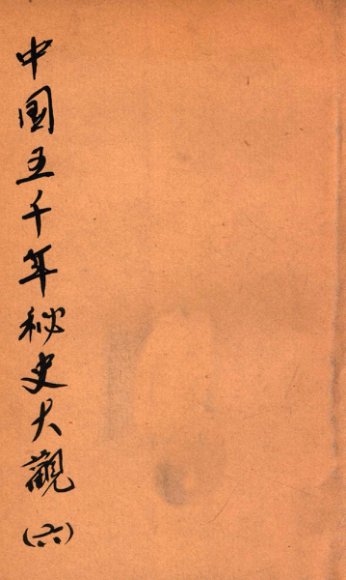 中国五千年秘史大觀(六)